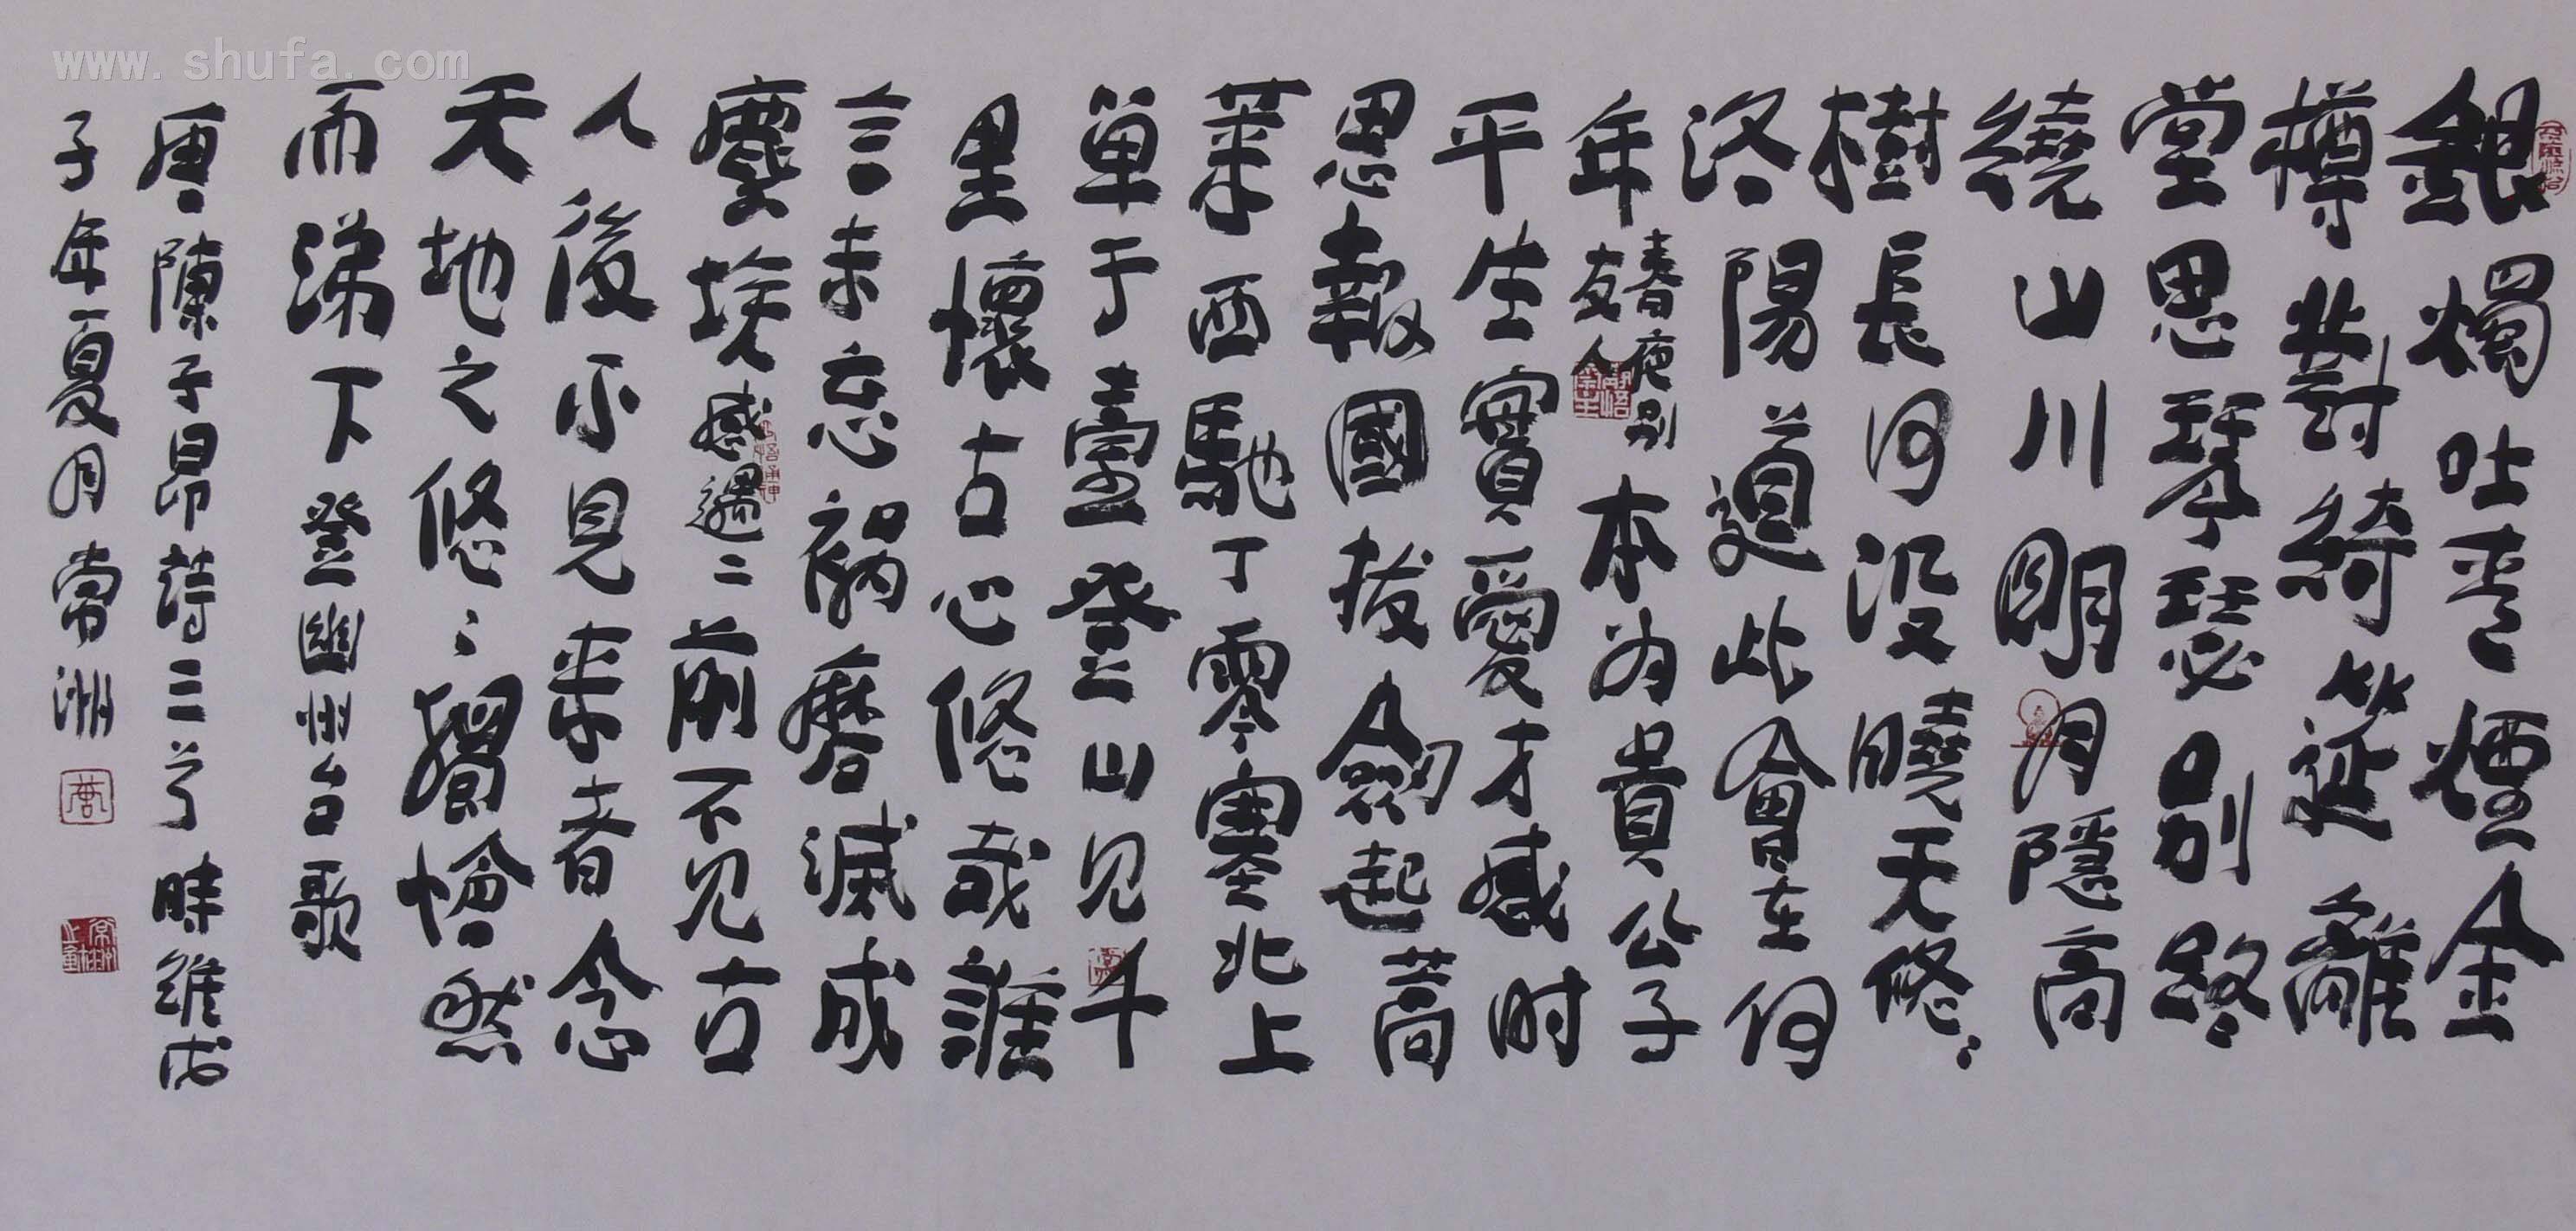 銀燭吐青煙金
樽對綺筵離
堂思琴瑟別路
繞山川明月隱高
樹長河沒曉天悠〻
洛陽道此會在何
年春夜別友人本為貴公子
平生實愛才感時
思報國拔劍起蒿
萊西馳丁零塞北上
單于臺登山見千
里懷古心悠哉誰
言未忘禍磨滅成
塵埃感遇二前不見古
人後不見來者念
天地之悠〻獨愴然
而涕下登幽州台歌
唐陳子昂詩三首時維戊
子年夏月常洲
www.shufa.com